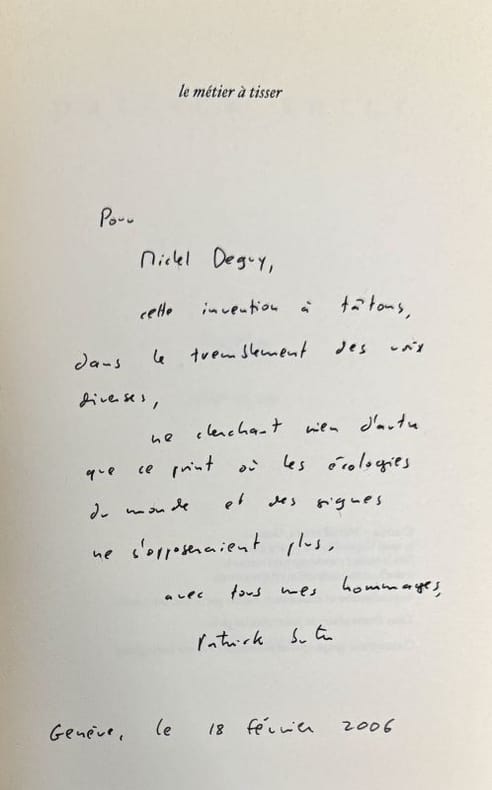 le métier à tisser
Pour
Michel Deguy,
cette invention à tâtons,
dans le tremblement des voix
diverses,
ne cherchant rien d'autre
que ce point où les écologies
du monde et des signes
ne s'opposeraient plus,
avec tous mes hommages,
Patrick
Genève, le 18 février 2006